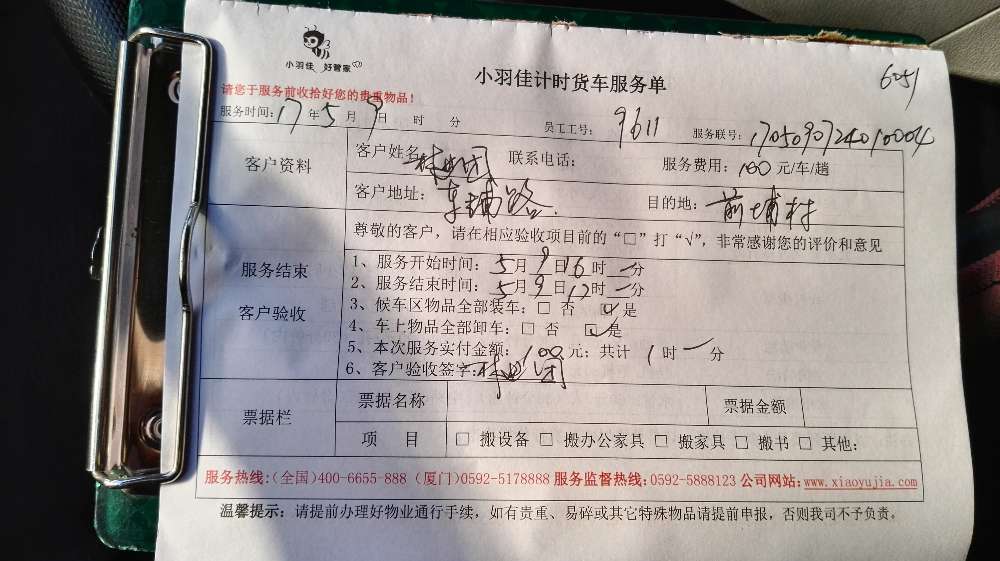 小羽佳 好管家
小羽佳计时货车服务单
6051
请您于服务前收拾好您的贵重物品！
服务时间：17年5月9日 时 分 员工工号：9611 服务联号：170509072401 0004
客户资料
客户姓名： 联系电话： 服务费用：100元/车/趟
客户地址：车埔路 目的地：前埔村
服务结束
客户验收
尊敬的客户，请在相应验收项目前的“□”打“√”，非常感谢您的评价和意见
1、服务开始时间：5月9日16时一分
2、服务结束时间：5月9日17时一分
3、候车区物品全部装车：□ 否 ☑是
4、车上物品全部卸车：□ 否 ☑是
5、本次服务实付金额：100元；共计 1时一分
6、客户验收签字：
票据栏
票据名称 票据金额
项 目 □ 搬设备 □ 搬办公家具 □ 搬家具 □ 搬书 □ 其他：
服务热线：（全国）400-6655-888（厦门）0592-5178888 服务监督热线：0592-5888123 公司网站：www.xiaoyujia.com
温馨提示：请提前办理好物业通行手续，如有贵重、易碎或其它特殊物品请提前申报，否则我司不予负责。